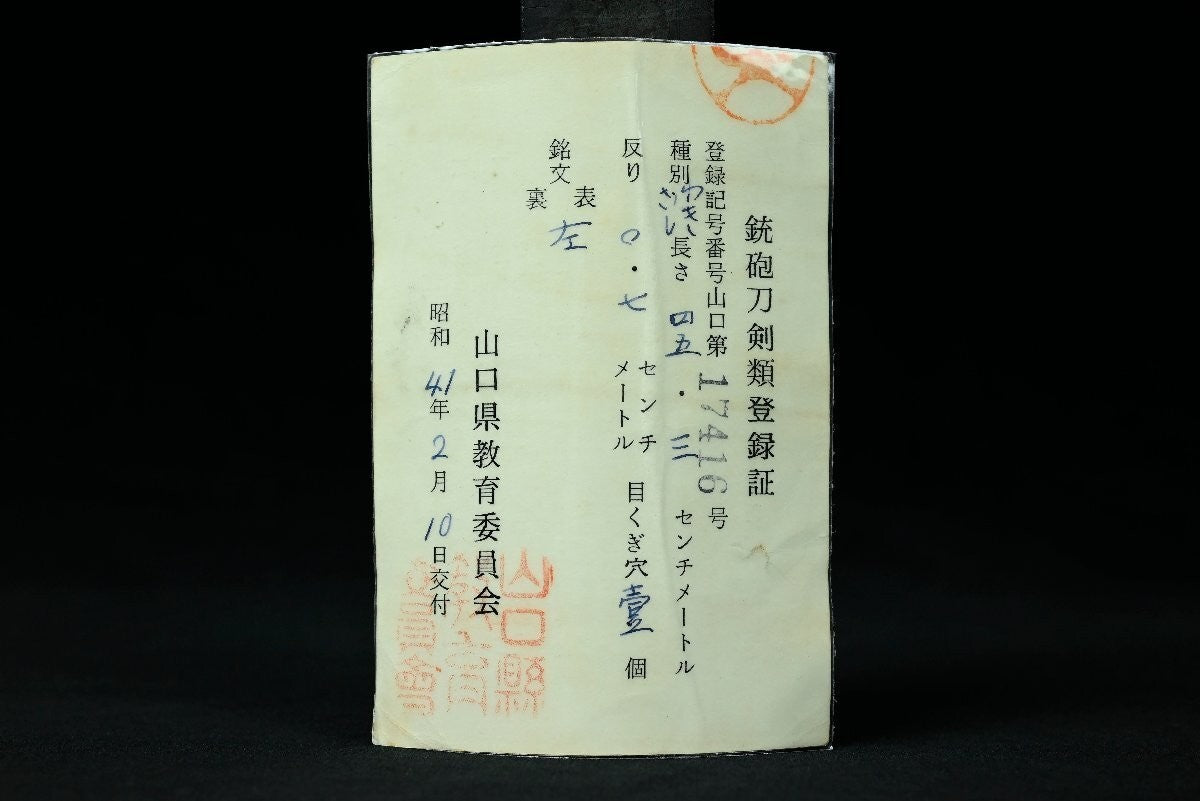 銃砲刀剣類登録証
登録記号番号山口第17416号
種別わきざし長さ四五・三センチメートル
反り〇・七センチメートル目くぎ穴壹個
銘文
表左
裏
山口県教育委員会
昭和41年2月10日交付
山口縣教育委員會